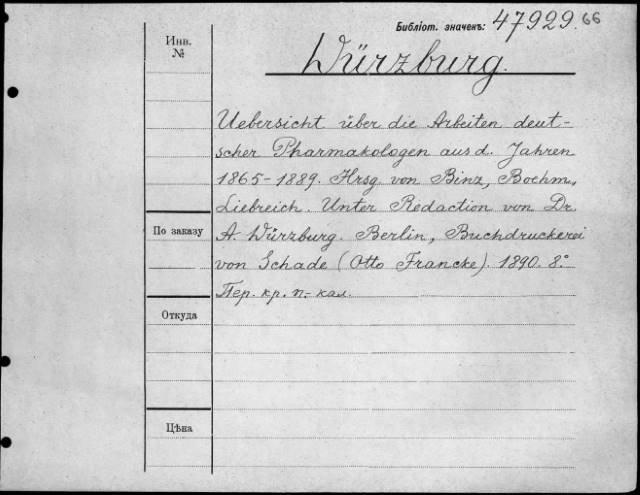 Библіот. значекъ: 47929.66
Инв. №
Würzburg.
Uebersicht über die Arbeiten deut-
scher Pharmakologen aus d. Jahren
1865-1889. Hrsg. von Binz, Boehm,
Liebreich. Unter Redaction von Dr.
По заказу
A. Würzburg. Berlin, Buchdruckerei
von Schade (Otto Francke). 1890. 8°.
Пер. кр. п.- кал.
Откуда
Цѣна